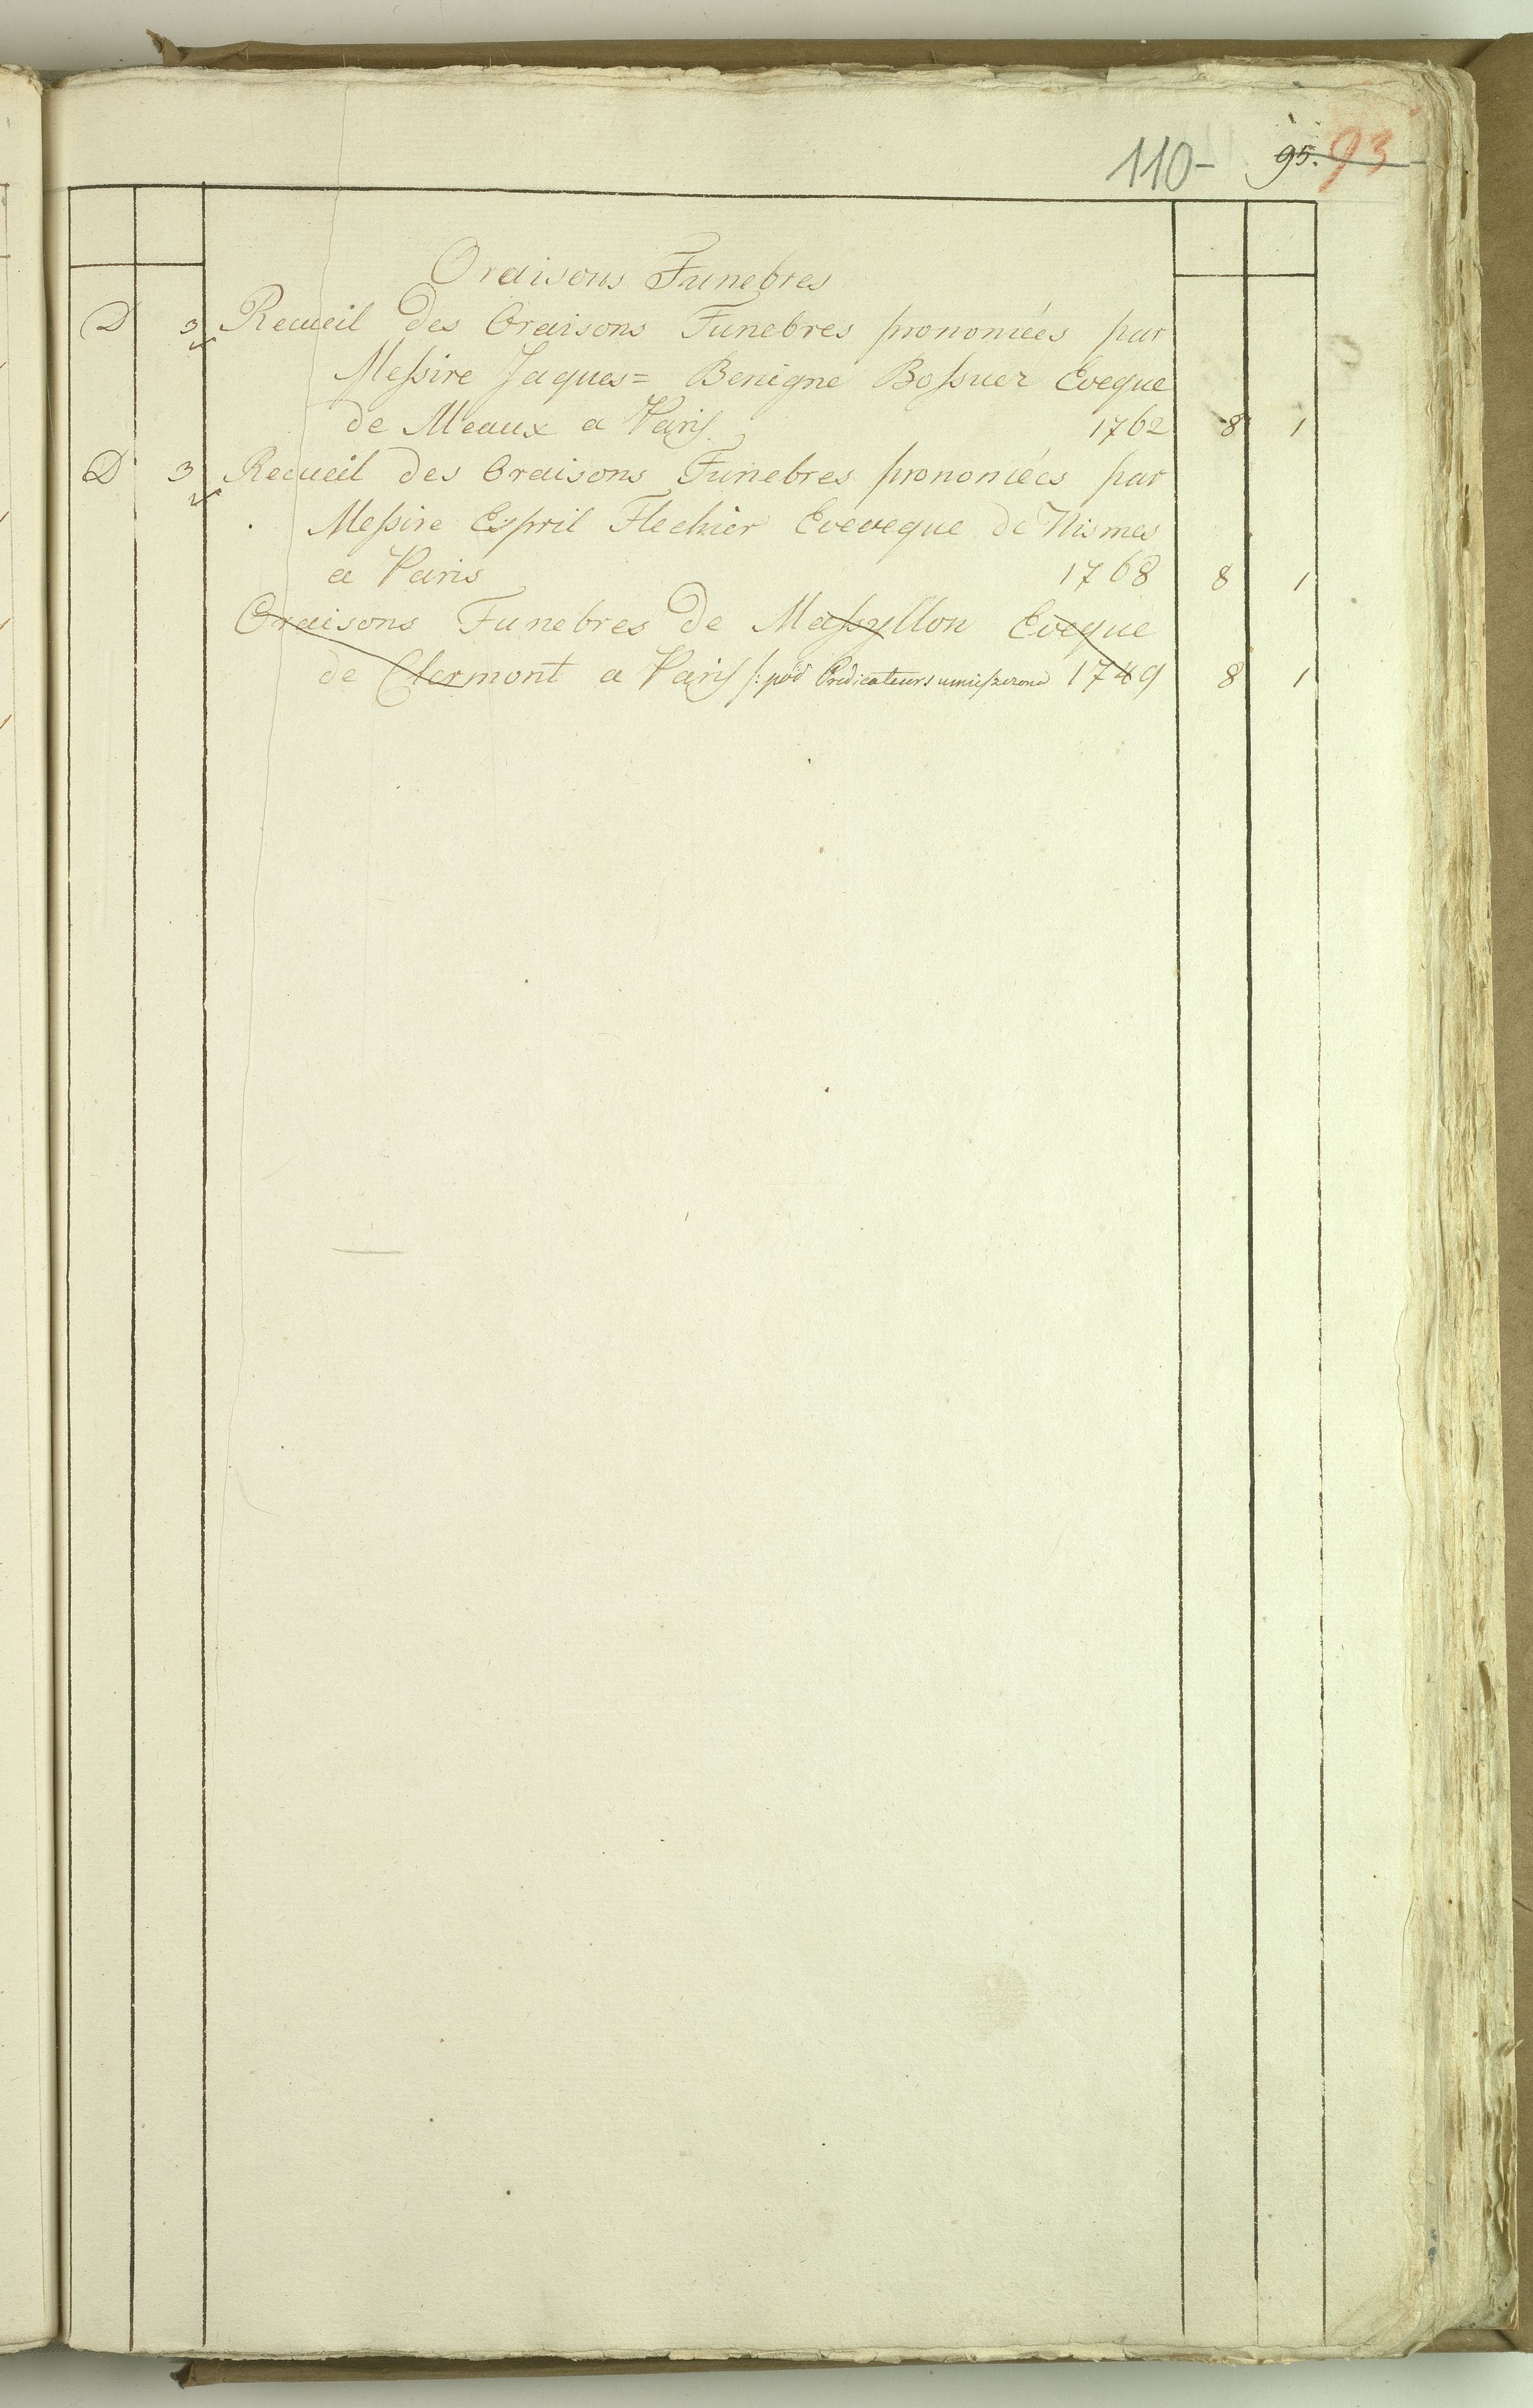 110- 95. 93
Oraisons Funebres
D 3 Recueil des Oraisons Funebres prononcées par
Meſsire Jaques= Benigne Boſsuet Eveque
de Meaux a Paris 1762 8 1
D 3 Recueil des Oraisons Funebres prononcées par
Meſsire Esprit Flechier Eveveque de Nismes
a Paris 1768 8 1
Oraisons Funebres de Maſsyllon Eveque
de Clermont a Paris /: pod Prédicateurs umieszczono 1749 8 1